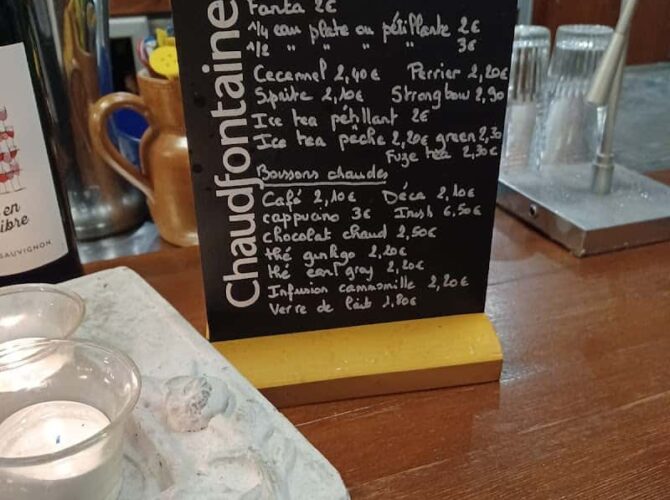 Chaudfontaine
Fanta 2€
1/4 eau plate ou pétillante 2€
1/2 " " " " 3€
Cecemel 2,40€ Perrier 2,20€
Sprite 2,10€ Strongbow 2,90
Ice tea pétillant 2€
Ice tea pêche 2,20€ green 2,30
Fuze tea 2,30€
Boissons chaudes
Café 2,10€ Déca 2,10€
cappucino 3€ Irish 6,50€
chocolat chaud 2,50€
thé ginkgo 2,20€
thé earl gray 2,20€
Infusion cammomille 2,20€
Verre de lait 1,80€
en
ibre
SAUVIGNON